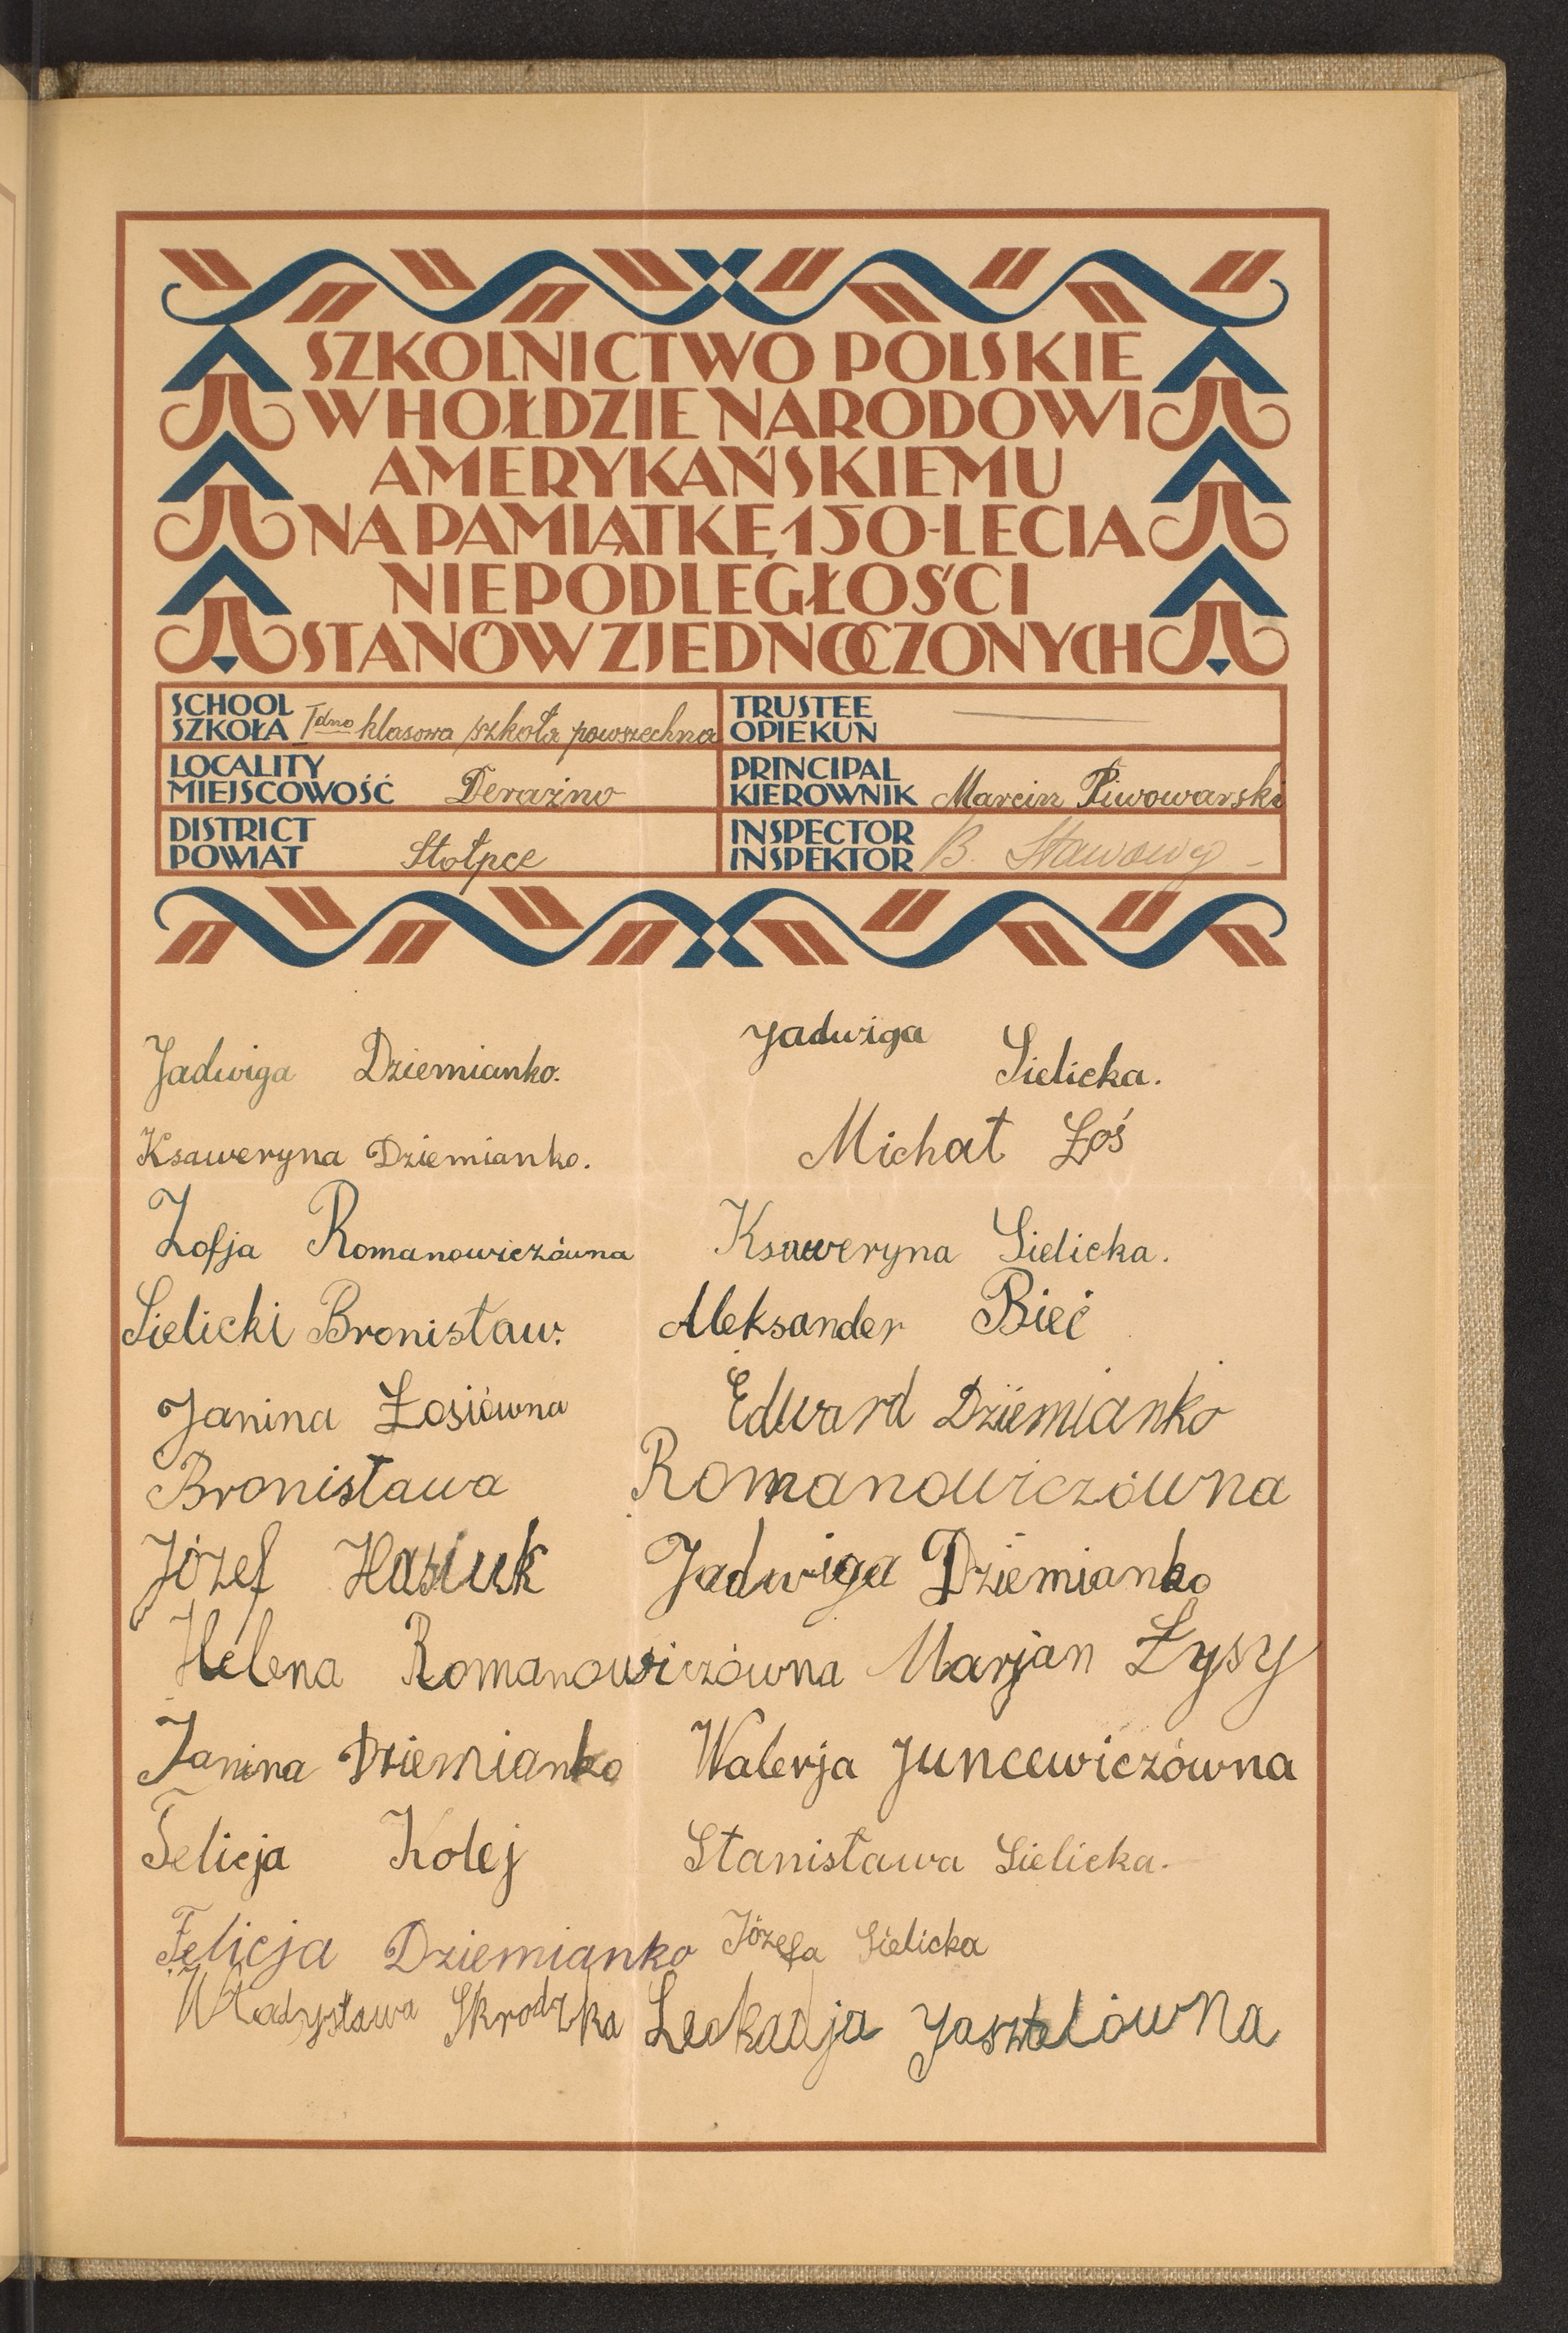 SZKOLNICTWO POLSKIE
W HOŁDZIE NARODOWI
AMERYKAŃSKIEMU
NA PAMIĄTKĘ 150-LECIA
NIEPODLEGŁOŚCI
STANÓW ZJEDNOCZONYCH
SCHOOL
SZKOŁA Idno klasowa szkoła powszechna
TRUSTEE
OPIEKUN
LOCALITY
MIEJSCOWOŚĆ Deraźno
PRINCIPAL
KIEROWNIK Marcin Piwowarski
DISTRICT
POWIAT Stołpce
INSPECTOR
INSPEKTOR B. Stawowy
Jadwiga Dziemianko. Jadwiga Sielicka.
Ksaweryna Dziemianko. Michał Łoś
Zofja Romanowiczówna Ksaweryna Sielicka.
Sielicki Bronisław. Aleksander Bieć
Janina Łosiówna Edward Dziemianko
Bronisława Romanowiczówna
Józef Hasiuk Jadwiga Dziemianko
Helena Romanowiczówna Marjan Łysy
Janina Dziemianko Walerja Juncewiczówna
Felicja Kolej Stanisława Sielicka.
Felicja Dziemianko Józefa Sielicka
Władysława Skrodzka Leokadja